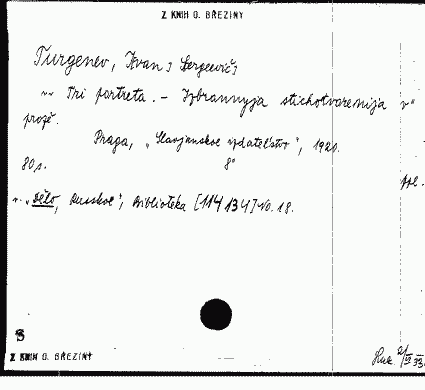 Z KNIH O. BŘEZINY
Turgenev, Ivan j Sergeevič j
„ Tri portreta. – Izbrannyja stichotvorenija v"
proze.
Praga, „Slavjanskoe izdatel'stvo", 1921.
80 s. 8°
ppl.
„Dělo, Russkoe", Biblioteka [114134] No. 18.
Z KNIH O. BŘEZINY